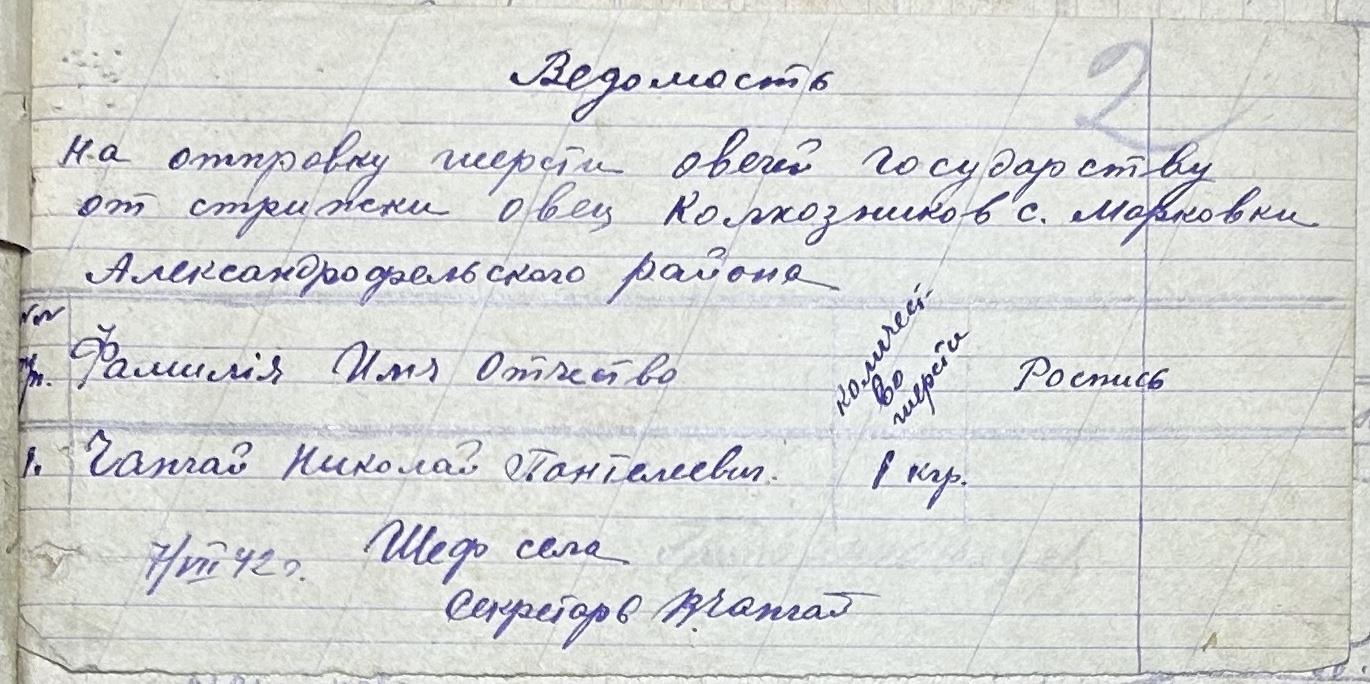 2
Ведомасть
на отправку шерсти овечей Государству
от стрижки овец Колхозников с. Марковки
Александрофельского района
№№ п/п. Фамилія Имя Отчество количест- во шерсти Роспись
1. Чапчай Николай Пантелеевич. 1 кгр.
7/VIII 42 г. Шеф села
Секретарь Чапчай